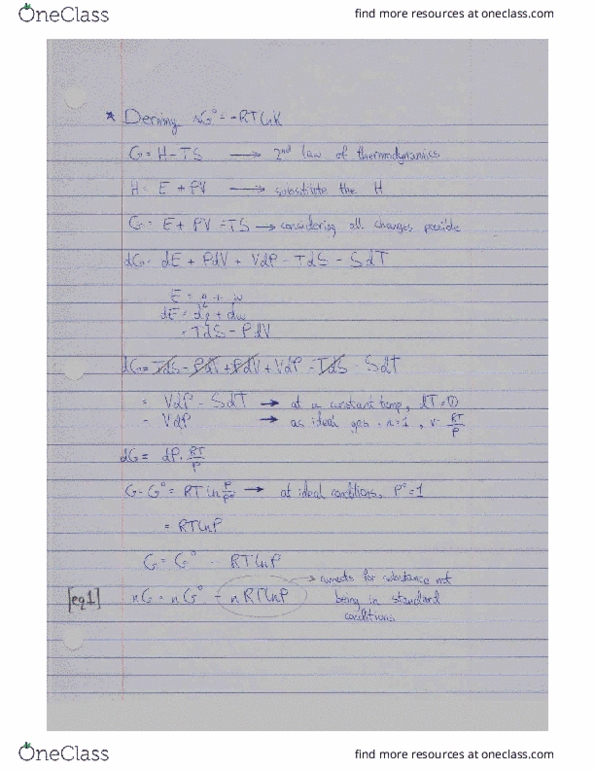 OneClass
find more resources at oneclass.com
* Deriving ΔG° = -RTlnK
G = H - TS → 2nd law of thermodynamics
H = E + PV → substitute the H
G = E + PV - TS → considering all changes possible
dG = dE + PdV + VdP - TdS - SdT
E = q + w
dE = dq + dw
= TdS - PdV
dG = TdS - PdV + PdV + VdP - TdS - SdT
= VdP - SdT → at a constant temp, dT = 0
= VdP → as ideal gas n=1, V = RT/P
dG = dP · RT/P
G - G° = RT ln P/P° → at ideal conditions, P° = 1
= RTlnP
G = G° - RTlnP
[eq1] nG = nG° - nRTlnP → corrects for substance not
being in standard
conditions
OneClass
find more resources at oneclass.com